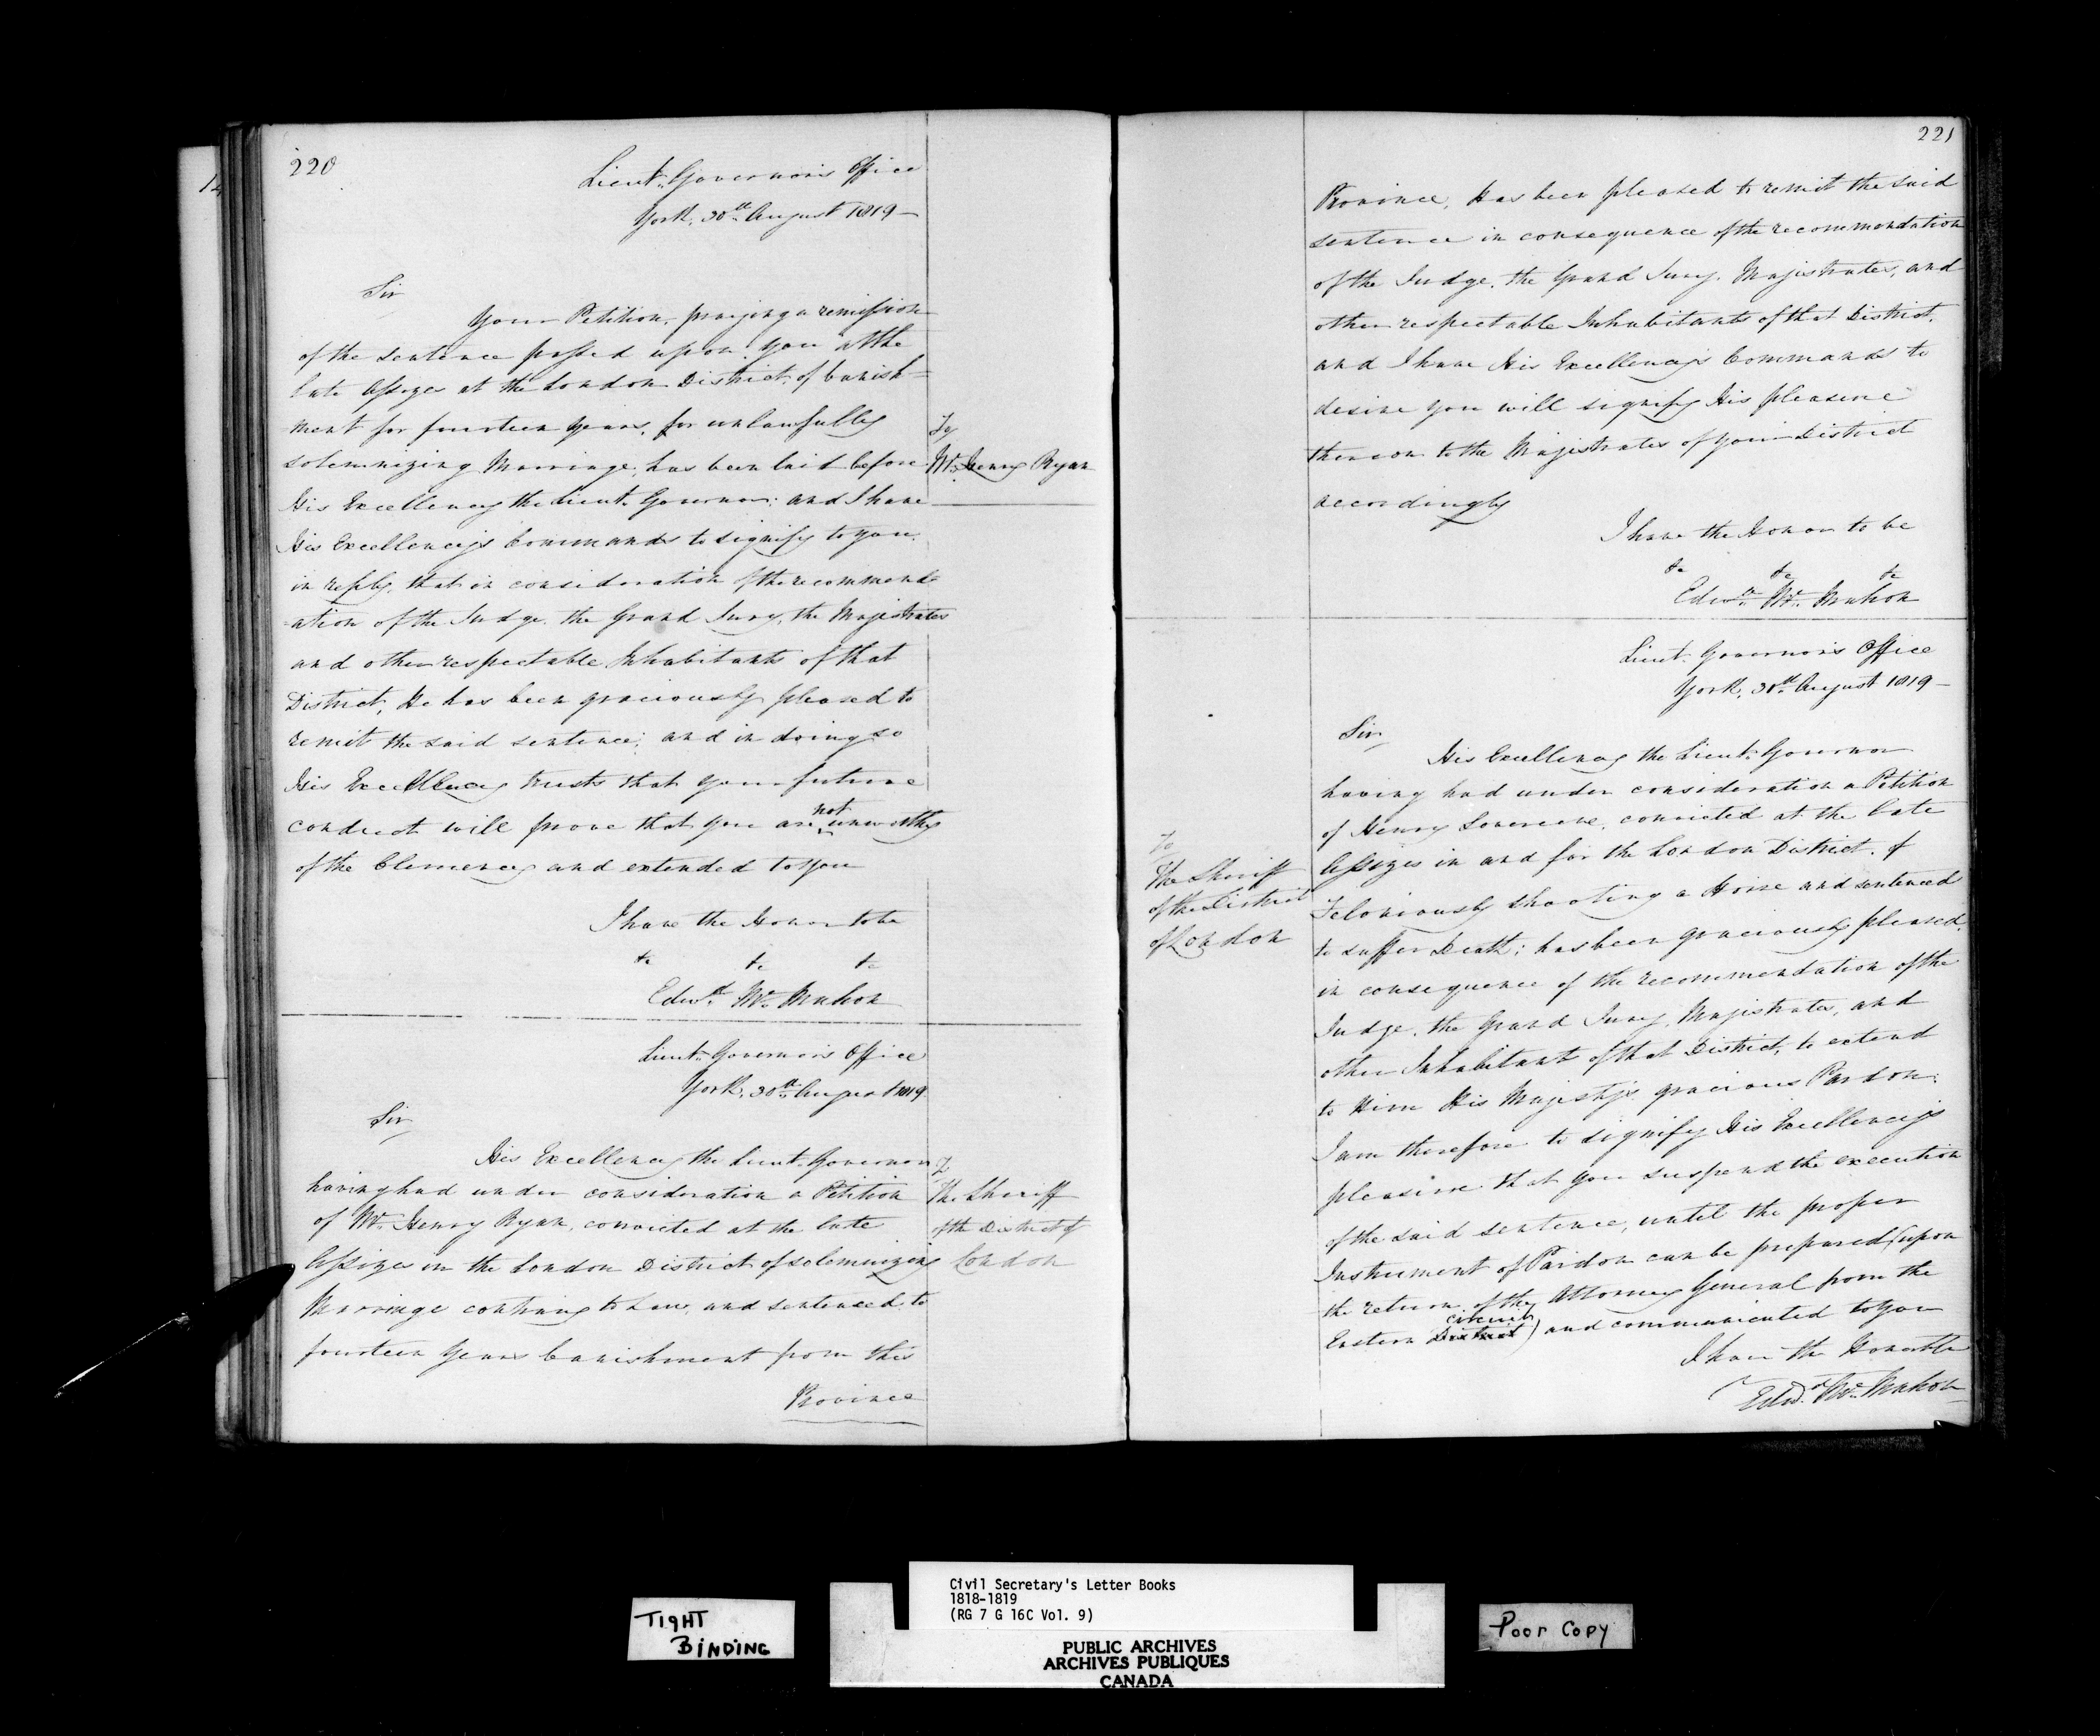 220
Lieut. Governor's Office
York, 30th August 1819 —
Sir
Your Petition, praying a remission
of the sentence passed upon you at the
late Assizes at the London District, of banish=
ment for fourteen years, for unlawfully
solemnizing Marriage, has been laid before
His Excellency the Lieut. Governor: and I have
His Excellency's Commands to signify to you
in reply, that in consideration of the recommend=
=ation of the Judge, the Grand Jury, the Magistrates
and other respectable Inhabitants of that
District, He has been graciously pleased to
remit the said sentence; and in doing so
His Excellency trusts that your future
conduct will prove that you are not unworthy
of the Clemency and extended to you
I have the Honor to be
&c &c &c
Edwd. Mc. Mahon
To
Mr. Henry Ryan
Lieut. Governor's Office
York, 30th August 1819
Sir
His Excellency the Lieut. Governor
having had under consideration a Petition
of Mr. Henry Ryan, convicted at the late
Assizes in the London District of solemnizing
Marriage contrary to Law, and sentenced to
fourteen Years banishment from this
Province
To
The Sheriff
of the District of
London
221
Province, has been pleased to remit the said
sentence in consequence of the recommendation
of the Judge, the Grand Jury, Magistrates, and
other respectable Inhabitants of that District,
and I have His Excellency's Commands to
desire you will signify His pleasure
thereon to the Magistrates of your District
accordingly
I have the Honor to be
&c &c &c
Edwd. Mc. Mahon
Lieut. Governor's Office
York, 30th August 1819 —
Sir
His Excellency the Lieut. Governor
having had under consideration a Petition
of Henry Sovereene, convicted at the late
Assizes in and for the London District, of
Feloniously shooting a Horse and sentenced
to suffer Death; has been graciously pleased,
in consequence of the recommendation of the
Judge, the Grand Jury, Magistrates, and
other Inhabitants of that District, to extend
to Him His Majesty's gracious Pardon:
I am therefore to signify His Excellency's
pleasure that you suspend the execution
of the said sentence, until the proper
Instrument of Pardon can be prepared (upon
the return of the Attorney General from the
Eastern District circuit) and communicated to you
I have the Honor &c
Edwd. Mc. Mahon
To
The Sheriff
of the District
of London
TIGHT
BINDING
Civil Secretary's Letter Books
1818-1819
(RG 7 G 16C Vol. 9)
PUBLIC ARCHIVES
ARCHIVES PUBLIQUES
CANADA
Poor Copy